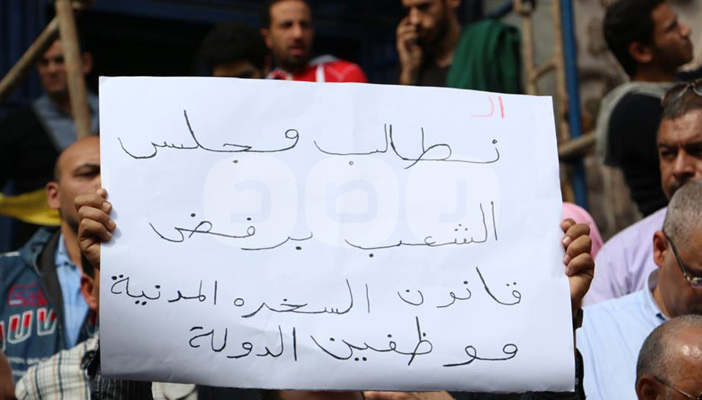 ال
نطالب مجلس
الشعب برفض
قانون السخره المدنية
موظفين الدولة